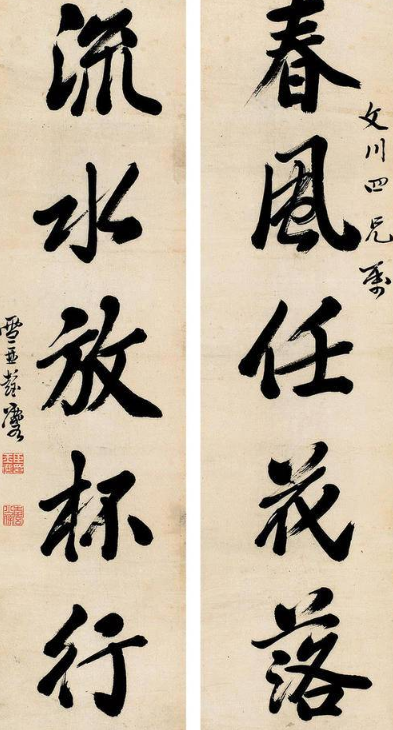 春風任花落
文川四兄属
流水放杯行
雪亞彭